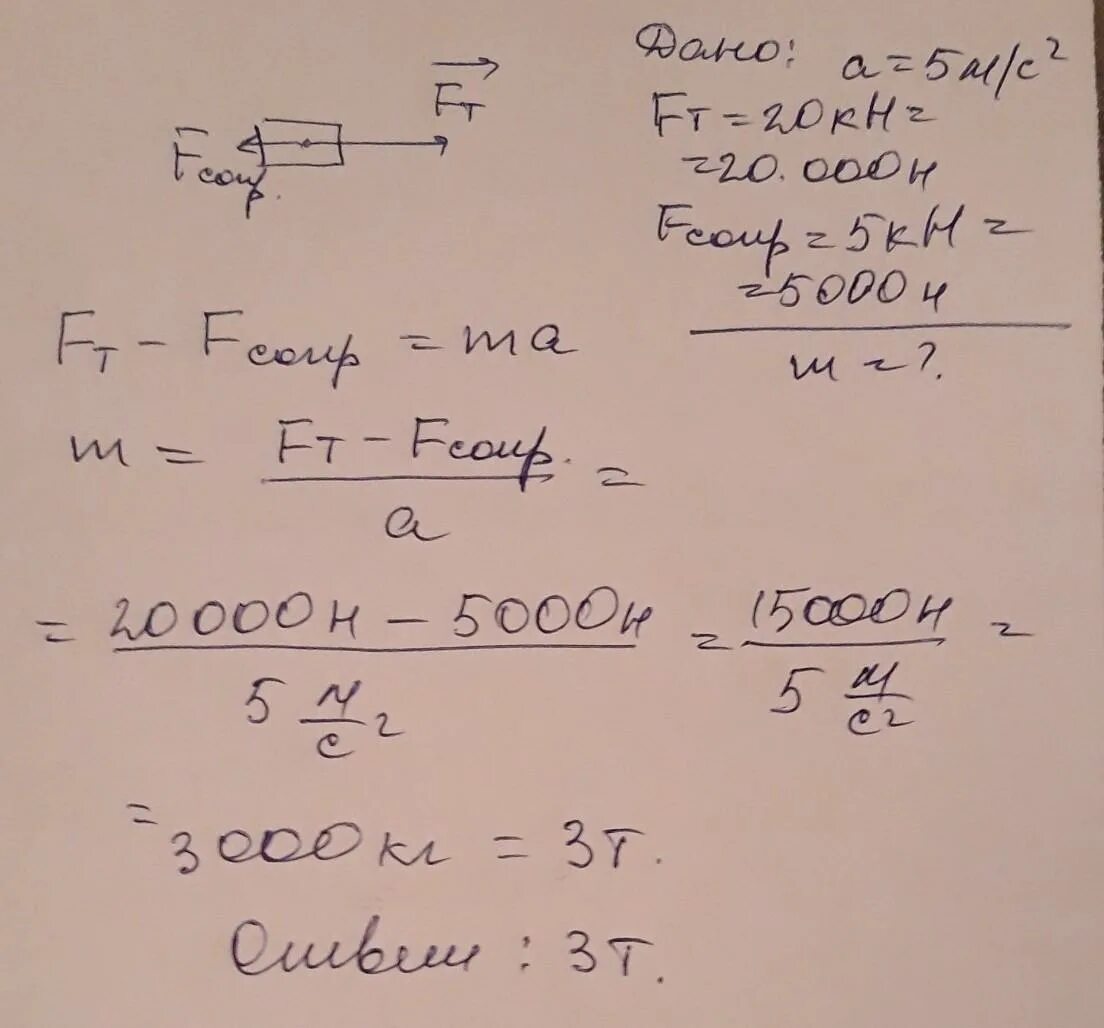 Дано: a = 5 м/с²
Fт = 20 кН =
= 20.000 н
Fсопр = 5 кН =
= 5000 н
m = ?
Fт
Fсопр.
Fт − Fсопр = ma
m = (Fт − Fсопр.) / a =
= (20000 н − 5000 н) / (5 м/с²) = 15000 н / (5 м/с²) =
= 3000 кг = 3 т.
Ответ : 3 т.